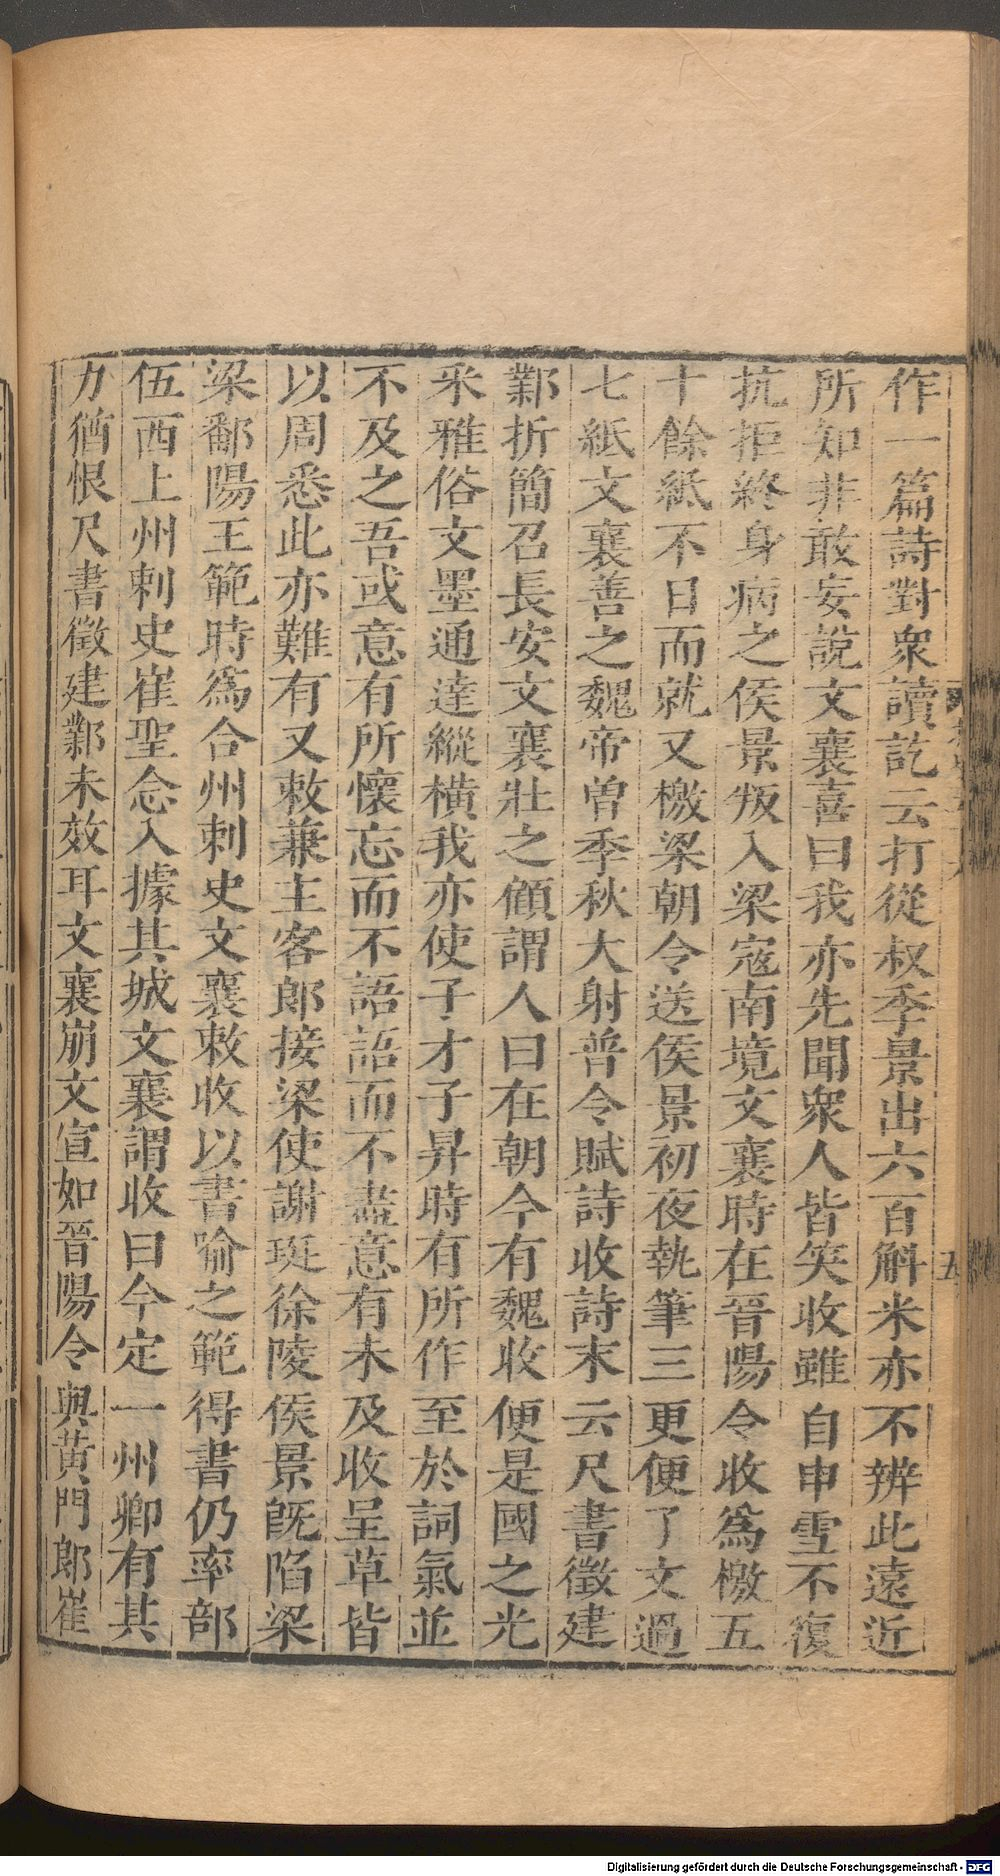 作一篇詩對衆讀訖云打從叔季景出六百斛米亦不辨此遠近
所知非敢妄說文襄喜曰我亦先聞衆人皆笑收雖自申雪不復
抗拒終身病之侯景叛入梁寇南境文襄時在晉陽令收爲檄五
十餘紙不日而就又檄梁朝令送侯景初夜執筆三更便了文過
七紙文襄善之魏帝曽季秋大射普令賦詩收詩末云尺書徵建
鄴折簡召長安文襄壯之顧謂人曰在朝今有魏收便是國之光
采雅俗文墨通達縱橫我亦使子才子昇時有所作至於詞氣並
不及之吾或意有所懷忘而不語語而不盡意有未及收呈草皆
以周悉此亦難有又敕兼主客郎接梁使謝珽徐陵侯景旣陷梁
梁鄱陽王範時爲合州刺史文襄敕收以書喻之範得書仍率部
伍西上州刺史崔聖念入據其城文襄謂收曰今定一州卿有其
力猶恨尺書徵建鄴未效耳文襄崩文宣如晉陽令與黃門郎崔
五
Digitalisierung gefördert durch die Deutsche Forschungsgemeinschaft - DFG